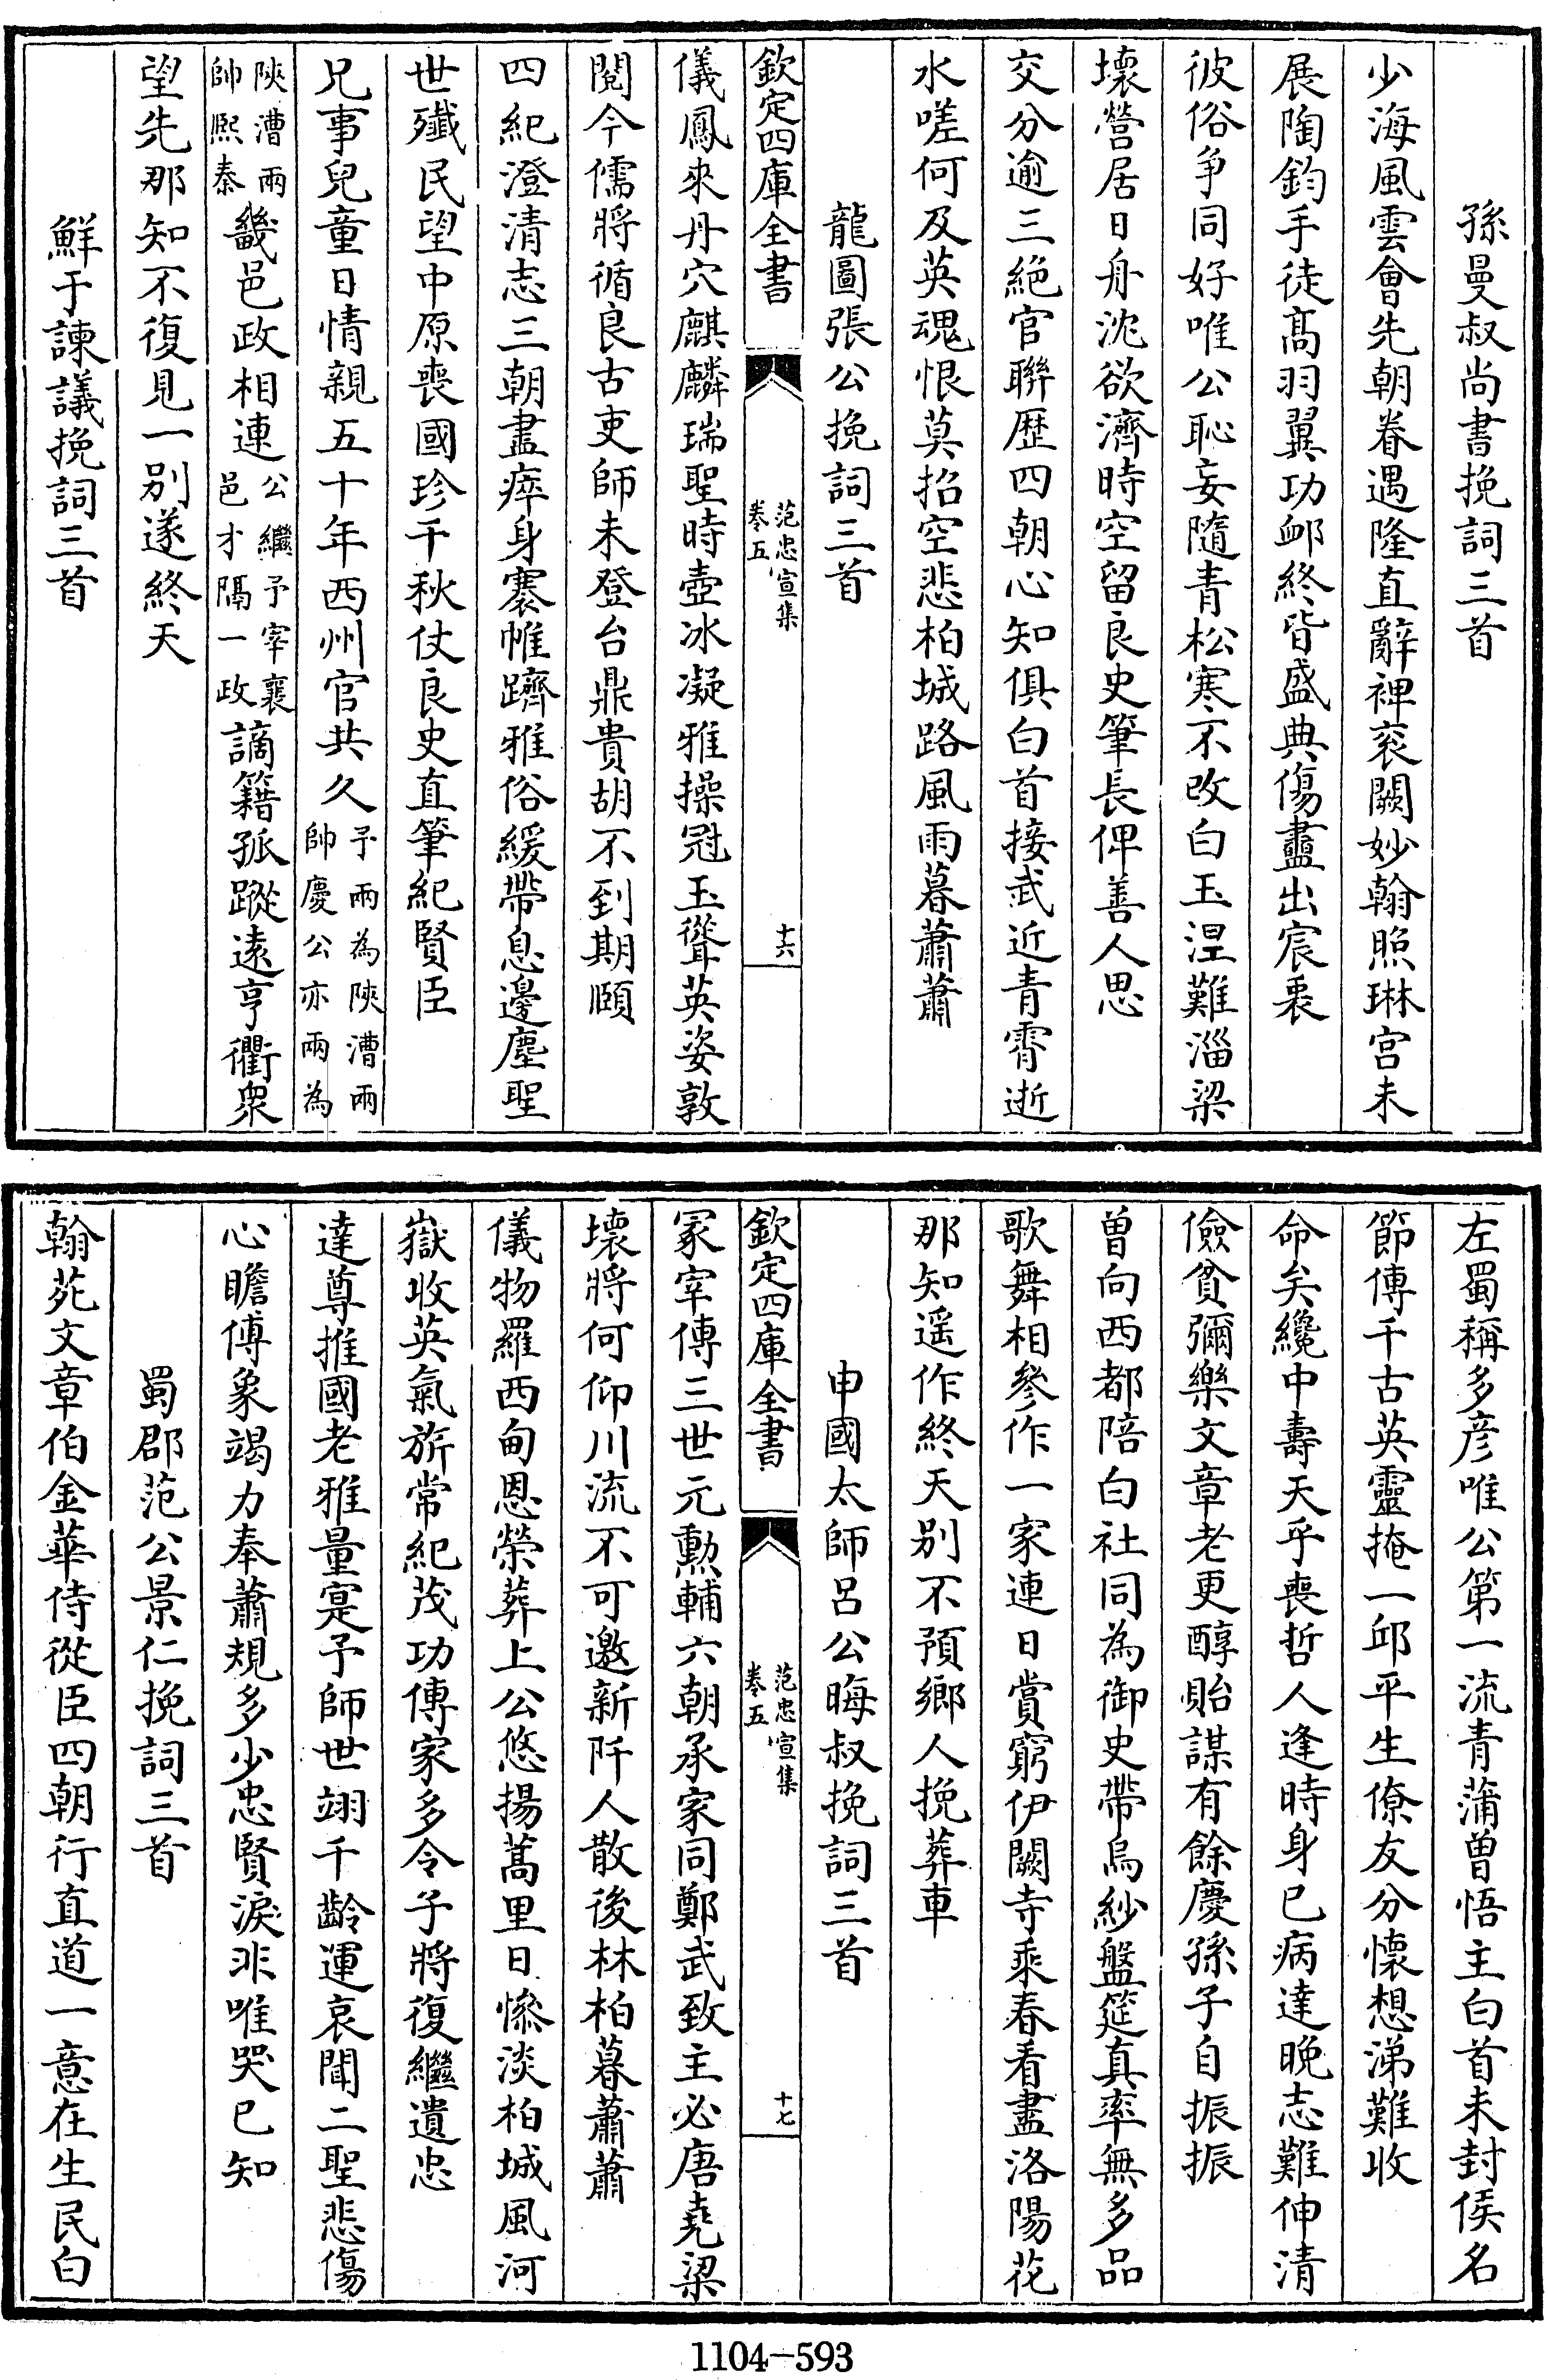 孫曼叔尚書挽詞三首
少海風雲會先朝眷遇隆直辭裨衮闕妙翰照琳宫未
展陶鈞手徒髙羽翼功䘏終皆盛典傷盡出宸衷
彼俗争同好唯公恥妄隨青松寒不改白玉涅難淄梁
壊營居日舟沈欲濟時空留良史筆長俾善人思
交分逾三絶官聨歴四朝心知俱白首接武近青霄逝
水嗟何及英魂恨莫招空悲柏城路風雨暮蕭蕭
龍圖張公挽詞三首
欽定四庫全書
范忠宣集
卷五
十六
儀鳳來丹穴麒麟瑞聖時壺冰凝雅操冠玉聳英姿敦
閲今儒將循良古吏師未登台鼎貴胡不到期頤
四紀澄清志三朝盡瘁身褰帷躋雅俗緩帶息邊塵聖
世殲民望中原喪國珍千秋仗良史直筆紀賢臣
兄事兒童日情親五十年西州官共久予兩為陜漕兩
帥慶公亦兩為
陜漕兩
帥熙秦畿邑政相連公繼予宰襄
邑才隔一政謫籍孤蹤逺亨衢衆
望先那知不復見一别遂終天
鮮于諫議挽詞三首
左蜀稱多彦唯公第一流青蒲曽悟主白首未封侯名
節傳千古英靈掩一邱平生僚友分懷想涕難收
命矣纔中壽天乎喪哲人逢時身已病達晩志難伸清
儉貧彌樂文章老更醇貽謀有餘慶孫子自振振
曽向西都陪白社同為御史帶烏紗盤筵真率無多品
歌舞相參作一家連日賞窮伊闕寺乘春看盡洛陽花
那知遥作終天别不預鄉人挽葬車
申國太師呂公晦叔挽詞三首
欽定四庫全書
范忠宣集
卷五
十七
冡宰傳三世元勲輔六朝承家同鄭武致主必唐堯梁
壊將何仰川流不可邀新阡人散後林柏暮蕭蕭
儀物羅西甸恩榮葬上公悠揚蒿里日慘淡柏城風河
嶽收英氣旂常紀茂功傳家多令子將復繼遺忠
達尊推國老雅量寔予師世翊千齡運哀聞二聖悲傷
心瞻傅象竭力奉蕭規多少忠賢淚非唯哭已知
蜀郡范公景仁挽詞三首
翰苑文章伯金華侍從臣四朝行直道一意在生民白
1104-593